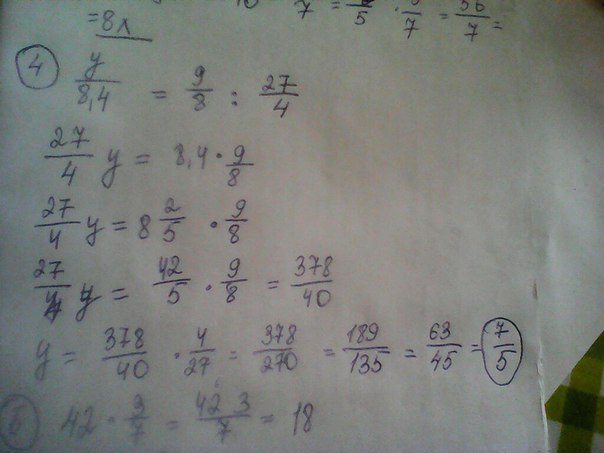 7 = 8/5 · 5/7 = 56/7 =
= 8л
④ y/8,4 = 9/8 : 27/4
27/4 y = 8,4 · 9/8
27/4 y = 8 2/5 · 9/8
27/4 y = 42/5 · 9/8 = 378/40
y = 378/40 · 4/27 = 378/270 = 189/135 = 63/45 = 7/5
42 · 3/7 = 42 3/7 = 18